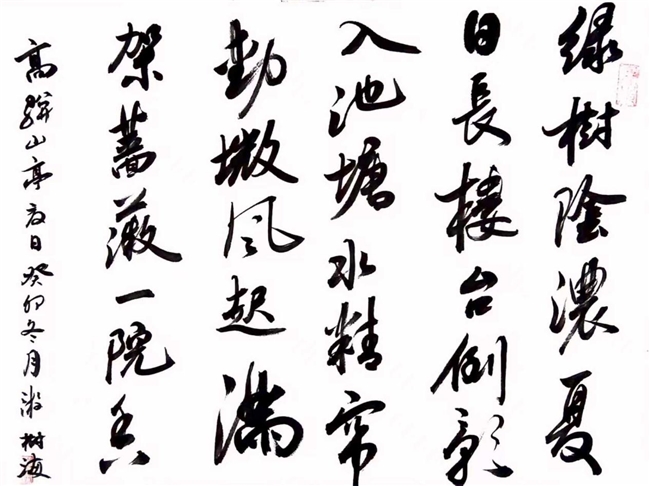 綠樹陰濃夏
日長樓台倒影
入池塘水精帘
動微风起满
架薔薇一院香
高駢山亭夏日癸卯冬月樹海